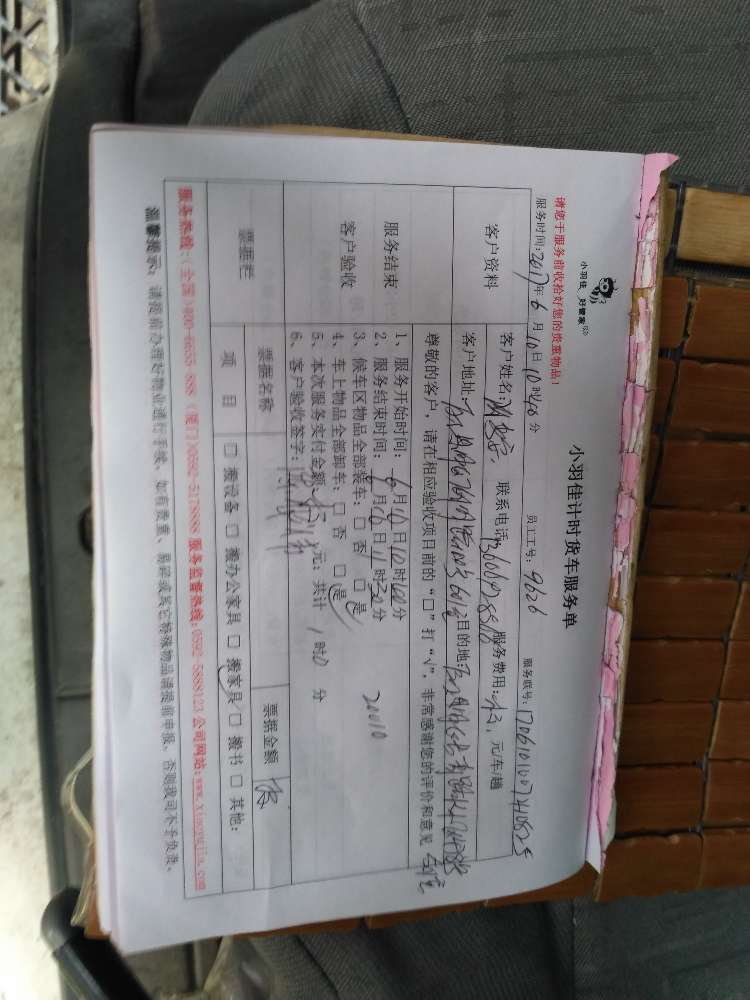 小羽佳 好管家
小羽佳计时货车服务单
请您于服务前收拾好您的贵重物品！
服务时间：2017年6月10日10时40分 员工工号：9626 服务联号：
客户资料
客户姓名： 联系电话： 服务费用： 元/车/趟
客户地址： 目的地：
服务结束
客户验收
尊敬的客户，请在相应验收项目前的“□”打“√”，非常感谢您的评价和意见
1、服务开始时间：6月10日10时00分
2、服务结束时间：6月10日11时30分
3、候车区物品全部装车：□否 □是
4、车上物品全部卸车：□否 □是
5、本次服务实付金额： 元；共计 1时0分
20010
6、客户验收签字：
票据栏
票据名称 票据金额
项目 □搬设备 □搬办公家具 □搬家具 □搬书 □其他：
服务热线：(全国)400-4655-888 (厦门)0592-5178888 服务监督热线：0592-5888123 公司网站：www.xiaoyujia.com
温馨提示：请提前办理好物业通行手续，如有贵重、易碎或其它特殊物品请提前申报，否则我司不予负责。